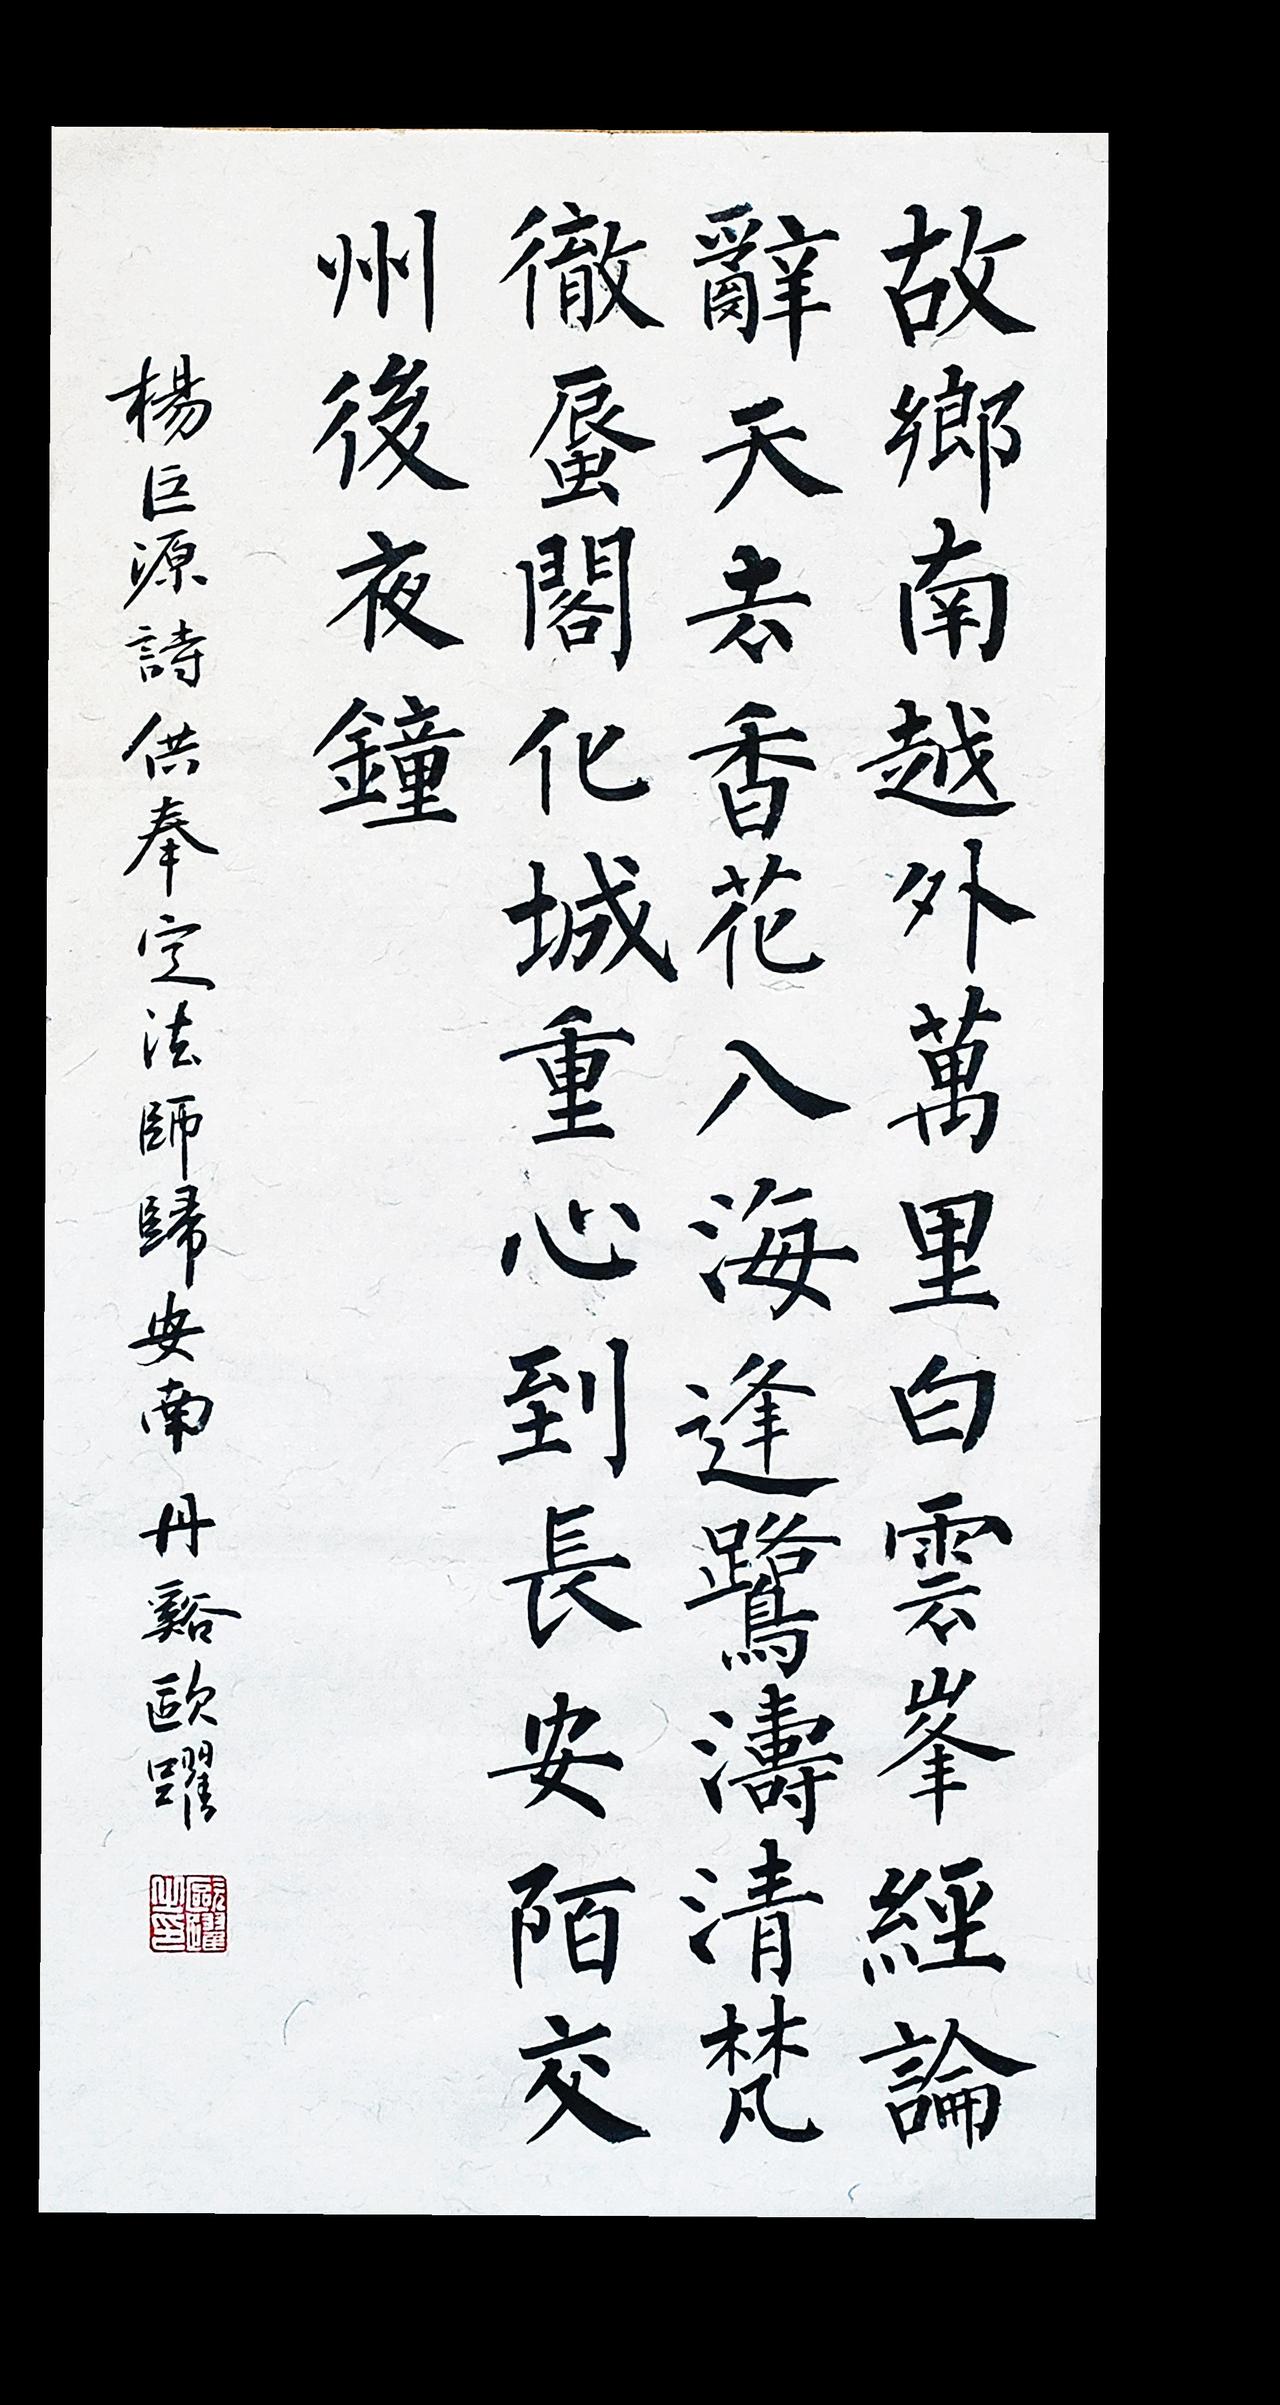 故鄉南越外萬里白雲峯經論
辭天去香花入海逢鷺濤清梵
徹蜃閣化城重心到長安陌交
州後夜鐘
楊巨源詩供奉定法師歸安南丹谿歐躍
歐躍之印